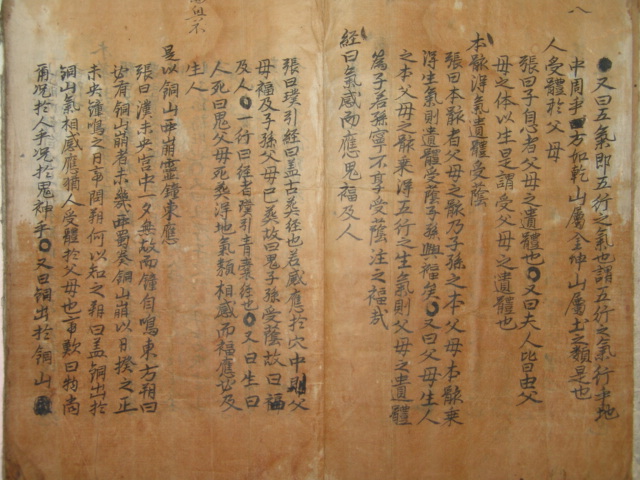 八
●又曰五氣即五行之氣也謂五行之氣行乎地
中周乎四方如乾山屬金坤山屬土之類是也
人受體於父母
張曰子息者父母之遺體也○又曰夫人皆由父
母之体以生是謂受父母之遺體也
本骸得氣遺體受蔭
張曰本骸者父母之骸乃子孫之本父母本骸乘
得生氣則遺體受蔭子孫興福矣○又曰父母生人
之本父母之骸乘得五行之生氣則父母之遺體
為子若孫寧不享受蔭注之福哉
經曰氣感而應鬼福及人
張曰璞引經曰盖古葬經也若感應於穴中則父
母福及子孫父母已葬故曰鬼子孫受蔭故曰福
及人○一行曰經者璞引青囊經也○又曰生曰
人死曰鬼父母死葬得地氣類相感而福應必及
生人
是以銅山西崩靈鐘東應
張曰漢未央宮中一夕無故而鐘自鳴東方朔曰
必有銅山崩者未幾西蜀奏銅山崩以日揆之正
未央鐘鳴之日帝問朔何以知之朔曰盖銅出於
銅山氣相感應猶人受體於父母也帝歎曰物尚
爾况於人乎况於鬼神乎○又曰銅出於銅山